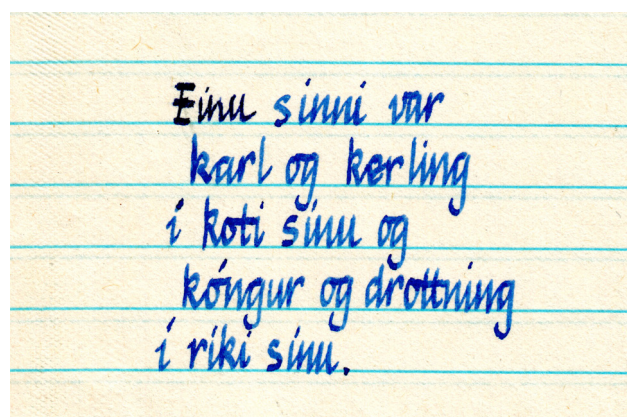 Einu sinni var
karl og kerling
í koti sínu og
kóngur og drottning
í ríki sínu.